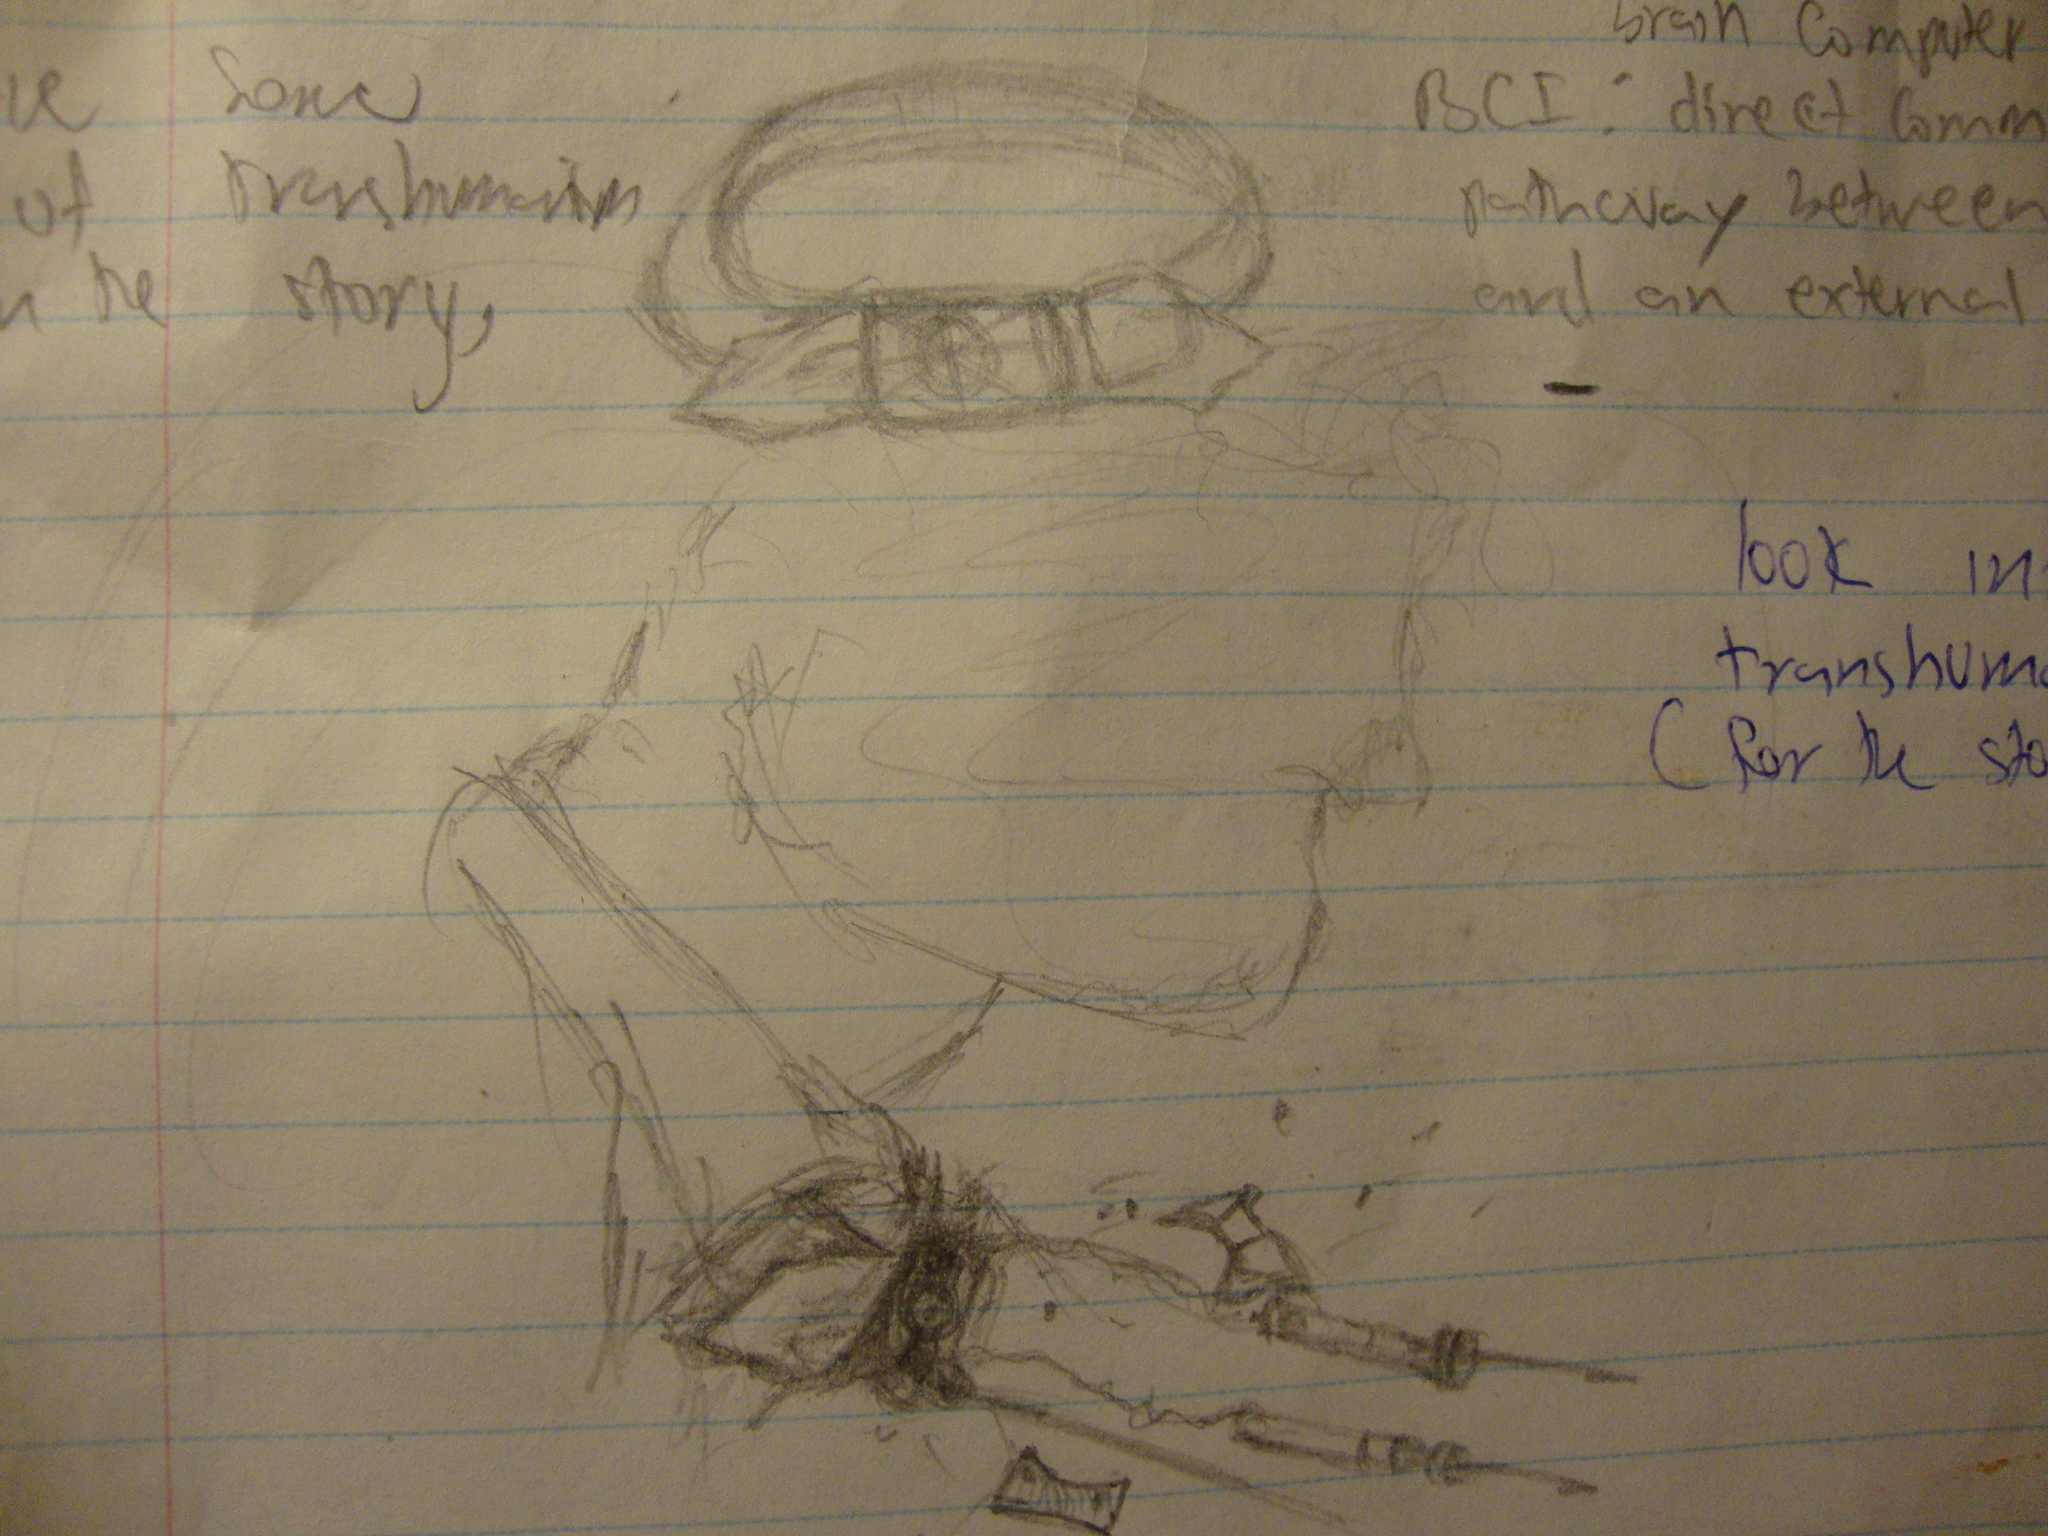 some
of transhumanism
the story,
brain Computer
BCI: direct comm
pathway between
and an external
look in
transhuma
(for the sto